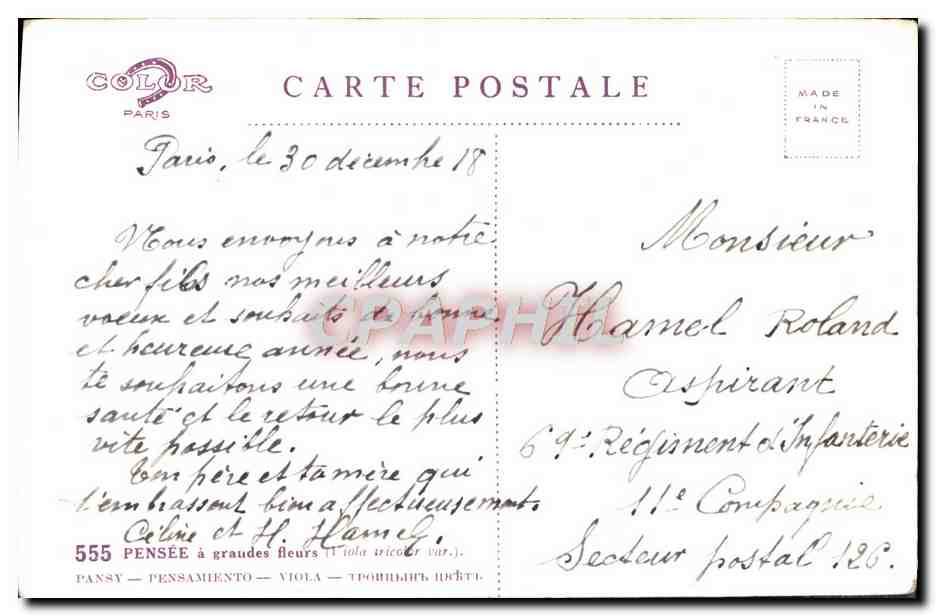 COLOR
PARIS
CARTE POSTALE
MADE
IN
FRANCE
Paris, le 30 décembre 18
Nous envoyons à notre
cher fils nos meilleurs
voeux et souhaits de bonne
et heureuse année, nous
te souhaitons une bonne
santé et le retour le plus
vite possible.
Ton père et ta mère qui
t'embrassent bien affectueusement.
Céline et H. Hamel.
Monsieur
Hamel Roland
Aspirant
69e Régiment d'Infanterie
11e Compagnie
Secteur postal 126.
CPAPHIL
555 PENSÉE à grandes fleurs (Viola tricolor var.).
PANSY — PENSAMIENTO — VIOLA — ТРОИЦЫНЪ ЦВѢТЪ